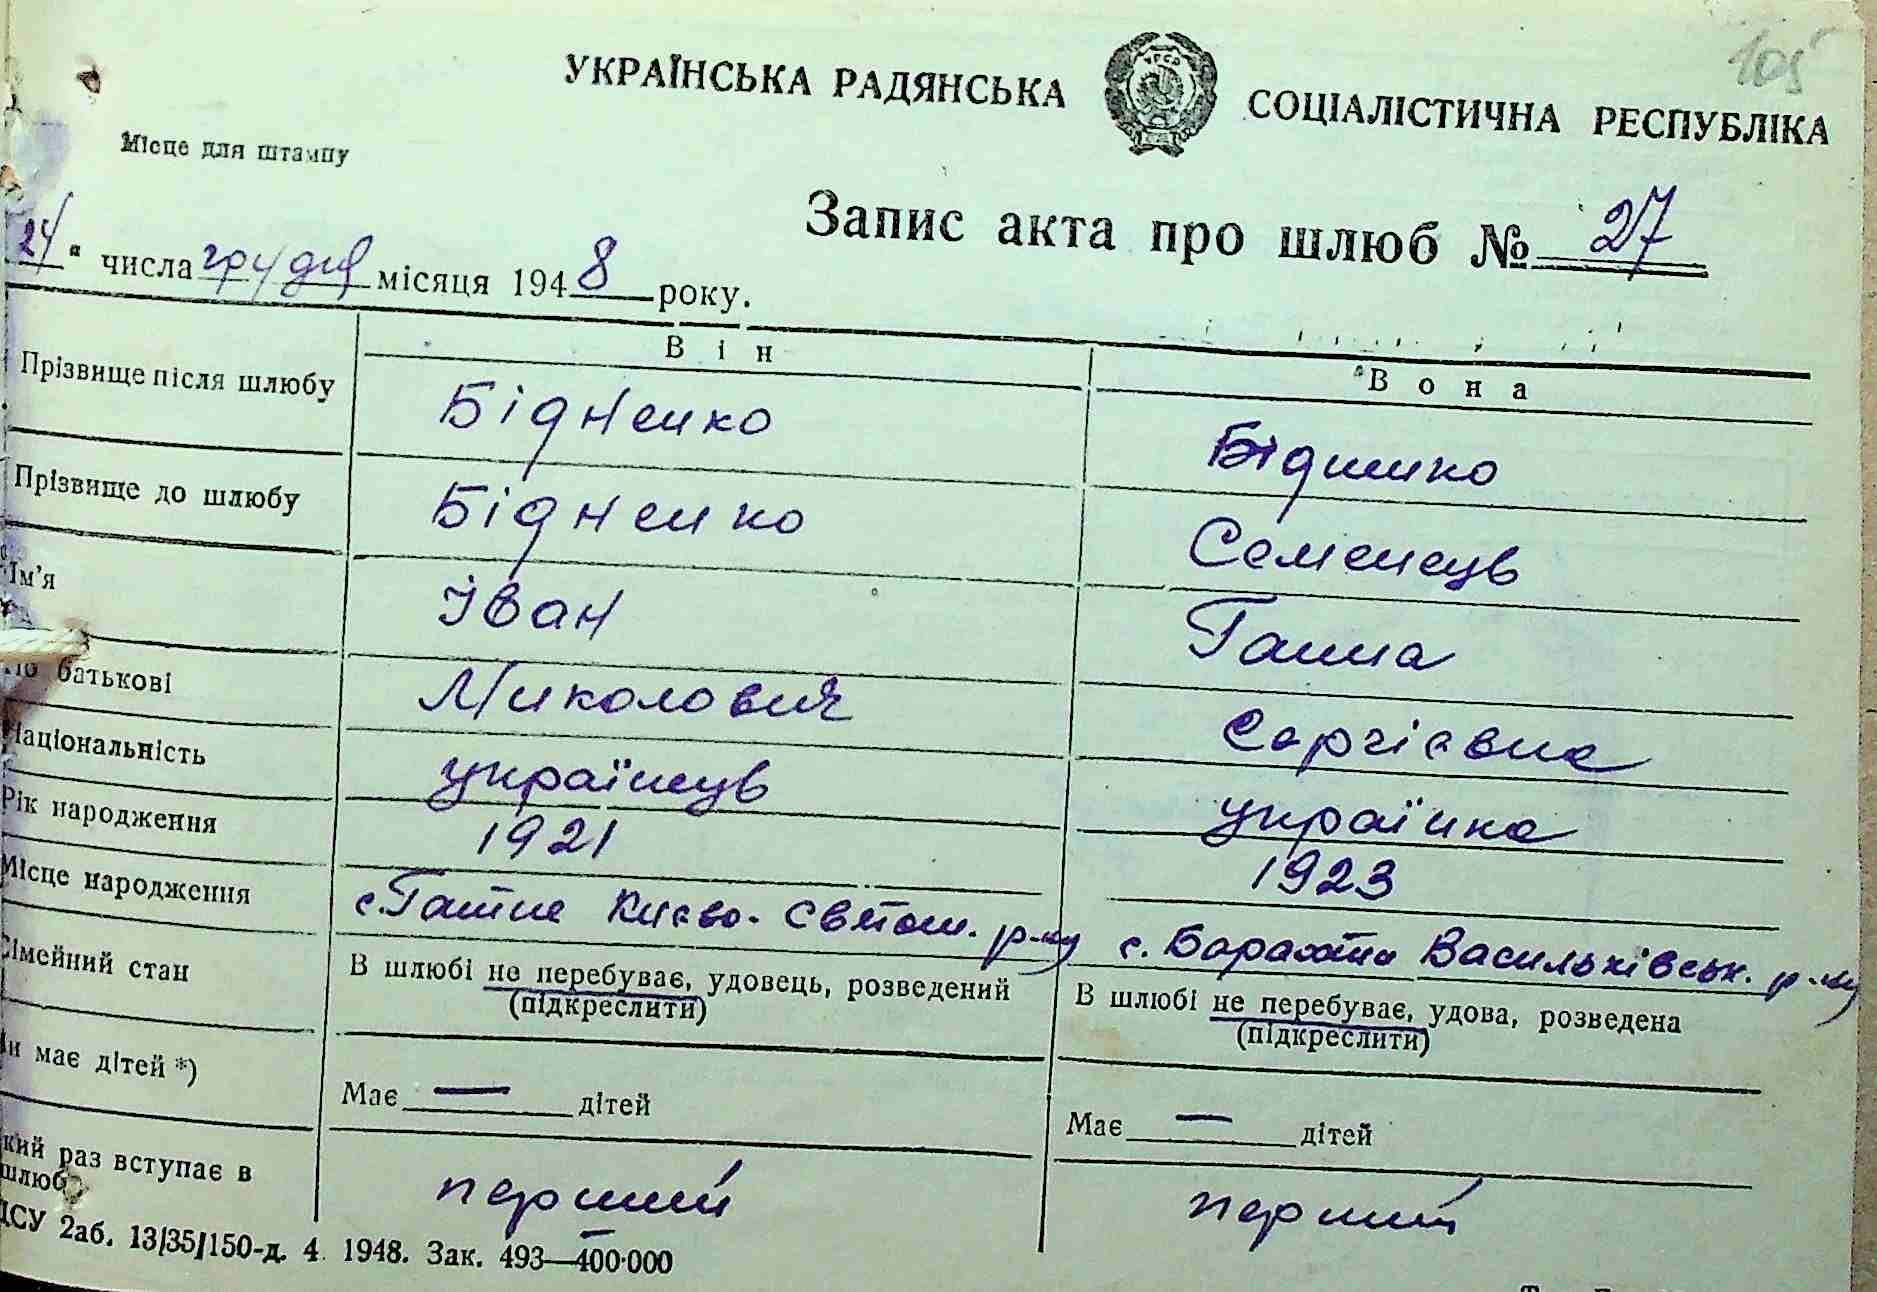 105
УКРАЇНСЬКА РАДЯНСЬКА СОЦІАЛІСТИЧНА РЕСПУБЛІКА
Місце для штампу
Запис акта про шлюб № 27
24 " числа грудня місяця 1948 року.
Він Вона
Прізвище після шлюбу Бідненко Бідненко
Прізвище до шлюбу Бідненко Семенець
Ім'я Іван Ганна
По батькові Миколович Сергієвна
Національність українець українка
Рік народження 1921 1923
Місце народження с. Гатне Києво-Святош. р-ну с. Барахти Васильківськ. р-ну
Сімейний стан В шлюбі не перебуває, удовець, розведений В шлюбі не перебуває, удова, розведена
(підкреслити) (підкреслити)
Чи має дітей *) Має — дітей Має — дітей
кий раз вступає в шлюб перший перший
ДСУ 2аб. 13/35/150-д. 4. 1948. Зак. 493—400·000